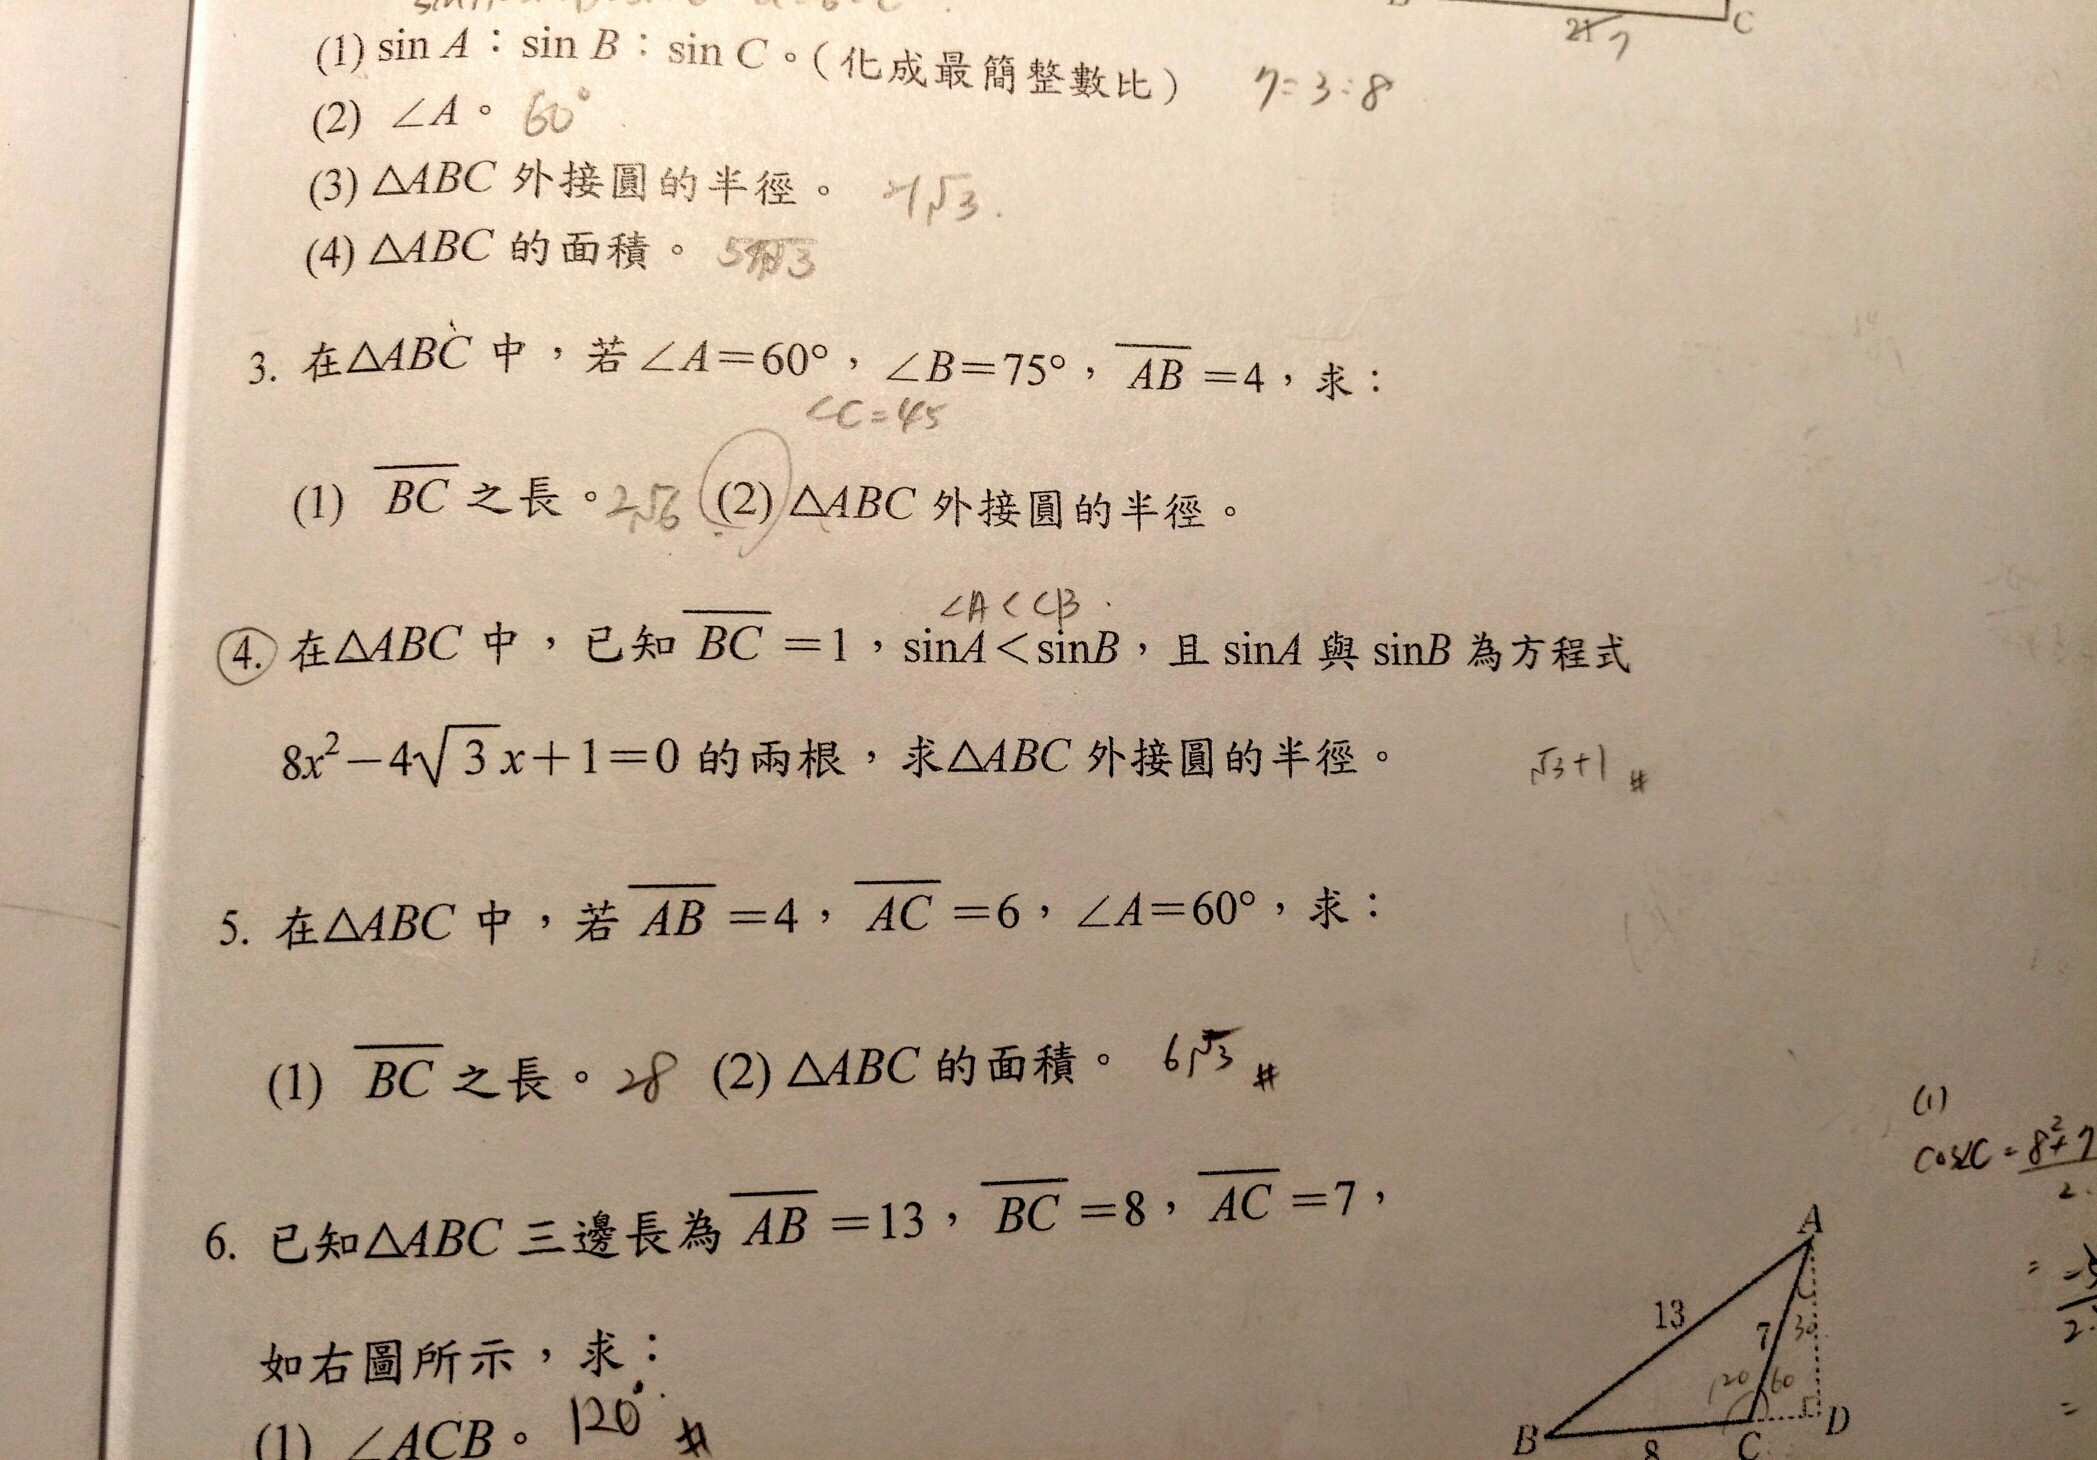 C
(1) sin A：sin B：sin C。(化成最簡整數比) 7:3:8
(2) ∠A。 60°
(3) △ABC 外接圓的半徑。
(4) △ABC 的面積。
3. 在△ABC 中，若∠A=60°，∠B=75°，AB=4，求：
∠C=45
(1) BC 之長。2√6 (2) △ABC 外接圓的半徑。
∠A<∠B
4. 在△ABC 中，已知 BC=1，sinA<sinB，且 sinA 與 sinB 為方程式
8x²−4√3x+1=0 的兩根，求△ABC 外接圓的半徑。 √3+1 #
5. 在△ABC 中，若 AB=4，AC=6，∠A=60°，求：
(1) BC 之長。28 (2) △ABC 的面積。 6√3 #
(1)
6. 已知△ABC 三邊長為 AB=13，BC=8，AC=7，
A
13
7
30
如右圖所示，求：
120 60
(1) ∠ACB。 120° #
B
8
C
D